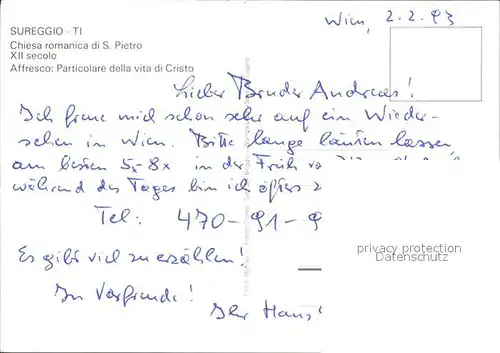 SUREGGIO - TI
Chiesa romanica di S. Pietro
XII secolo
Affresco: Particolare della vita di Cristo
Wien, 2.2.93
Lieber Bruder Andreas!
Ich freue mich schon sehr auf ein Wieder-
sehen in Wien. Bitte lange läuten lassen,
am besten 5-8x in der Früh
während des Tages bin ich öfters
Tel: 470-91-9
privacy protection
Datenschutz
Es gibt viel zu erzählen!
In Vorfreude!
Ihr Hans